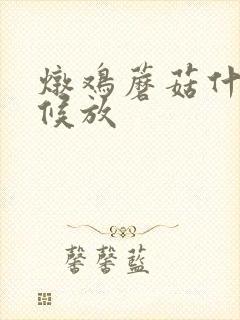 燉鸡蘑菇什
候放
馨馨藍